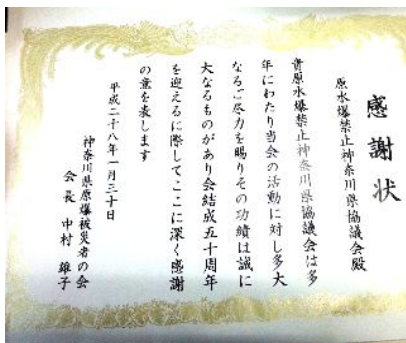 感謝状
原水爆禁止神奈川県協議会殿
貴原水爆禁止神奈川県協議会は多
年にわたり当会の活動に対し多大
なるご尽力を賜りその功績は誠に
大なるものがあり会結成五十周年
を迎えるに際してここに深く感謝
の意を表します
平成二十八年一月三十日
神奈川県原爆被災者の会
会長 中村 雄子